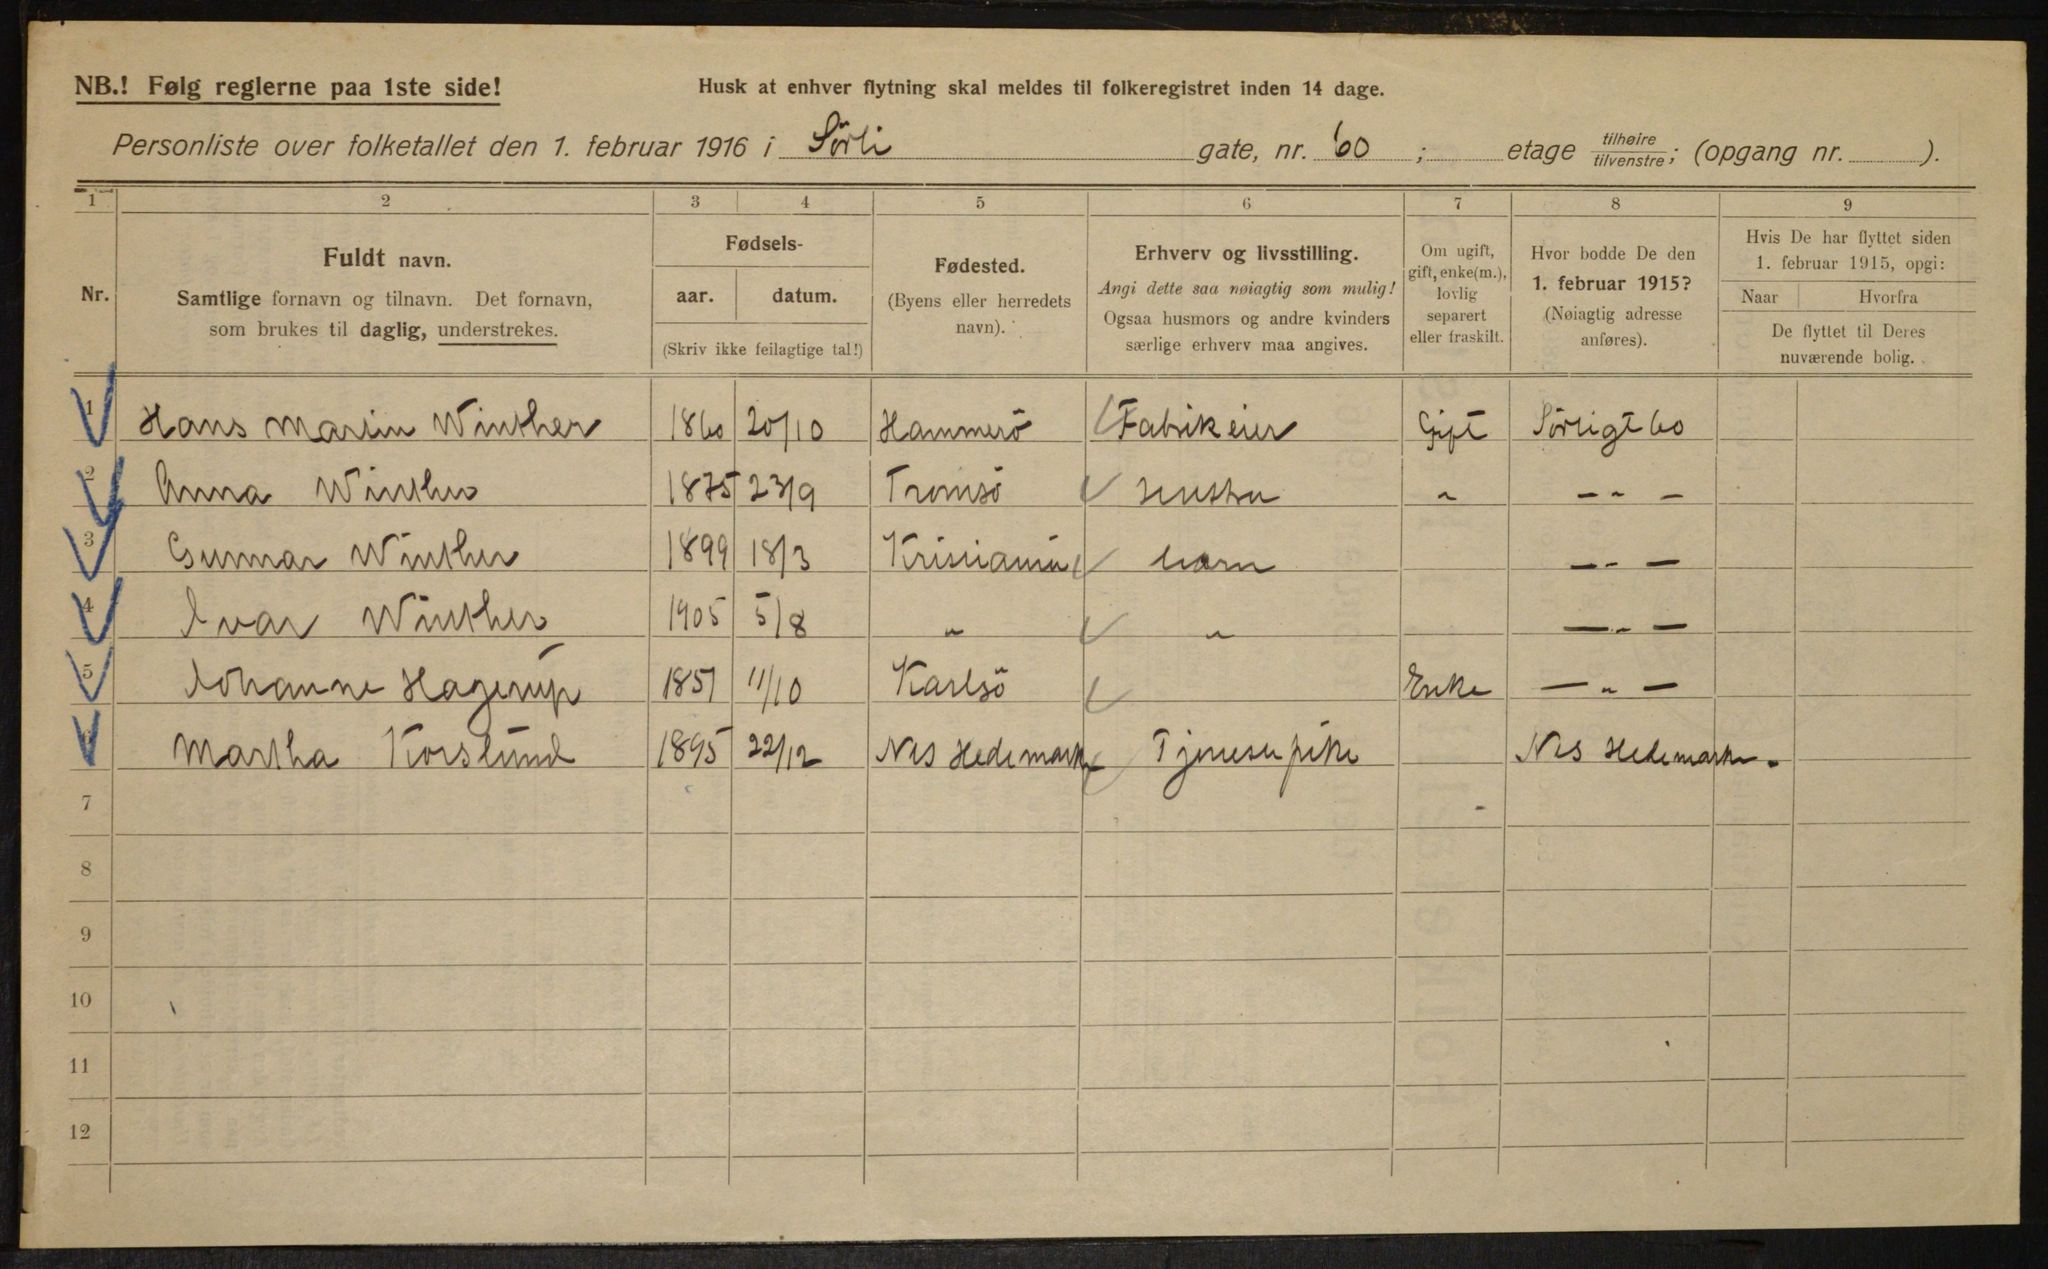 NB.! Følg reglerne paa 1ste side!
Husk at enhver flytning skal meldes til folkeregistret inden 14 dage.
Personliste over folketallet den 1. februar 1916 i Sörli gate, nr. 60 ; etage tilhøire tilvenstre; (opgang nr. ).
1 2 3 4 5 6 7 8 9
Nr.
Fuldt navn.
Samtlige fornavn og tilnavn. Det fornavn,
som brukes til daglig, understrekes.
Fødsels-
aar. datum.
(Skriv ikke feilagtige tal!)
Fødested.
(Byens eller herredets
navn).
Erhverv og livsstilling.
Angi dette saa nøiagtig som mulig!
Ogsaa husmors og andre kvinders
særlige erhverv maa angives.
Om ugift,
gift, enke(m.),
lovlig
separert
eller fraskilt.
Hvor bodde De den
1. februar 1915?
(Nøiagtig adresse
anføres).
Hvis De har flyttet siden
1. februar 1915, opgi:
Naar Hvorfra
De flyttet til Deres
nuværende bolig.
1 Hans Martin Winther 1860 20/10 Hammerö Fabrikeier Gift Sörligt 60
2 Anna Winther 1875 23/9 Tromsö Hustru " — " —
3 Gunnar Winther 1899 18/3 Kristiania barn — " —
4 Ivar Winther 1905 5/8 " " — " —
5 Johanne Hagerup 1851 11/10 Karlsö Enke — " —
6 Martha Korslund 1895 22/12 Nes Hedemarken Tjenestepike Nes Hedemarken
7
8
9
10
11
12